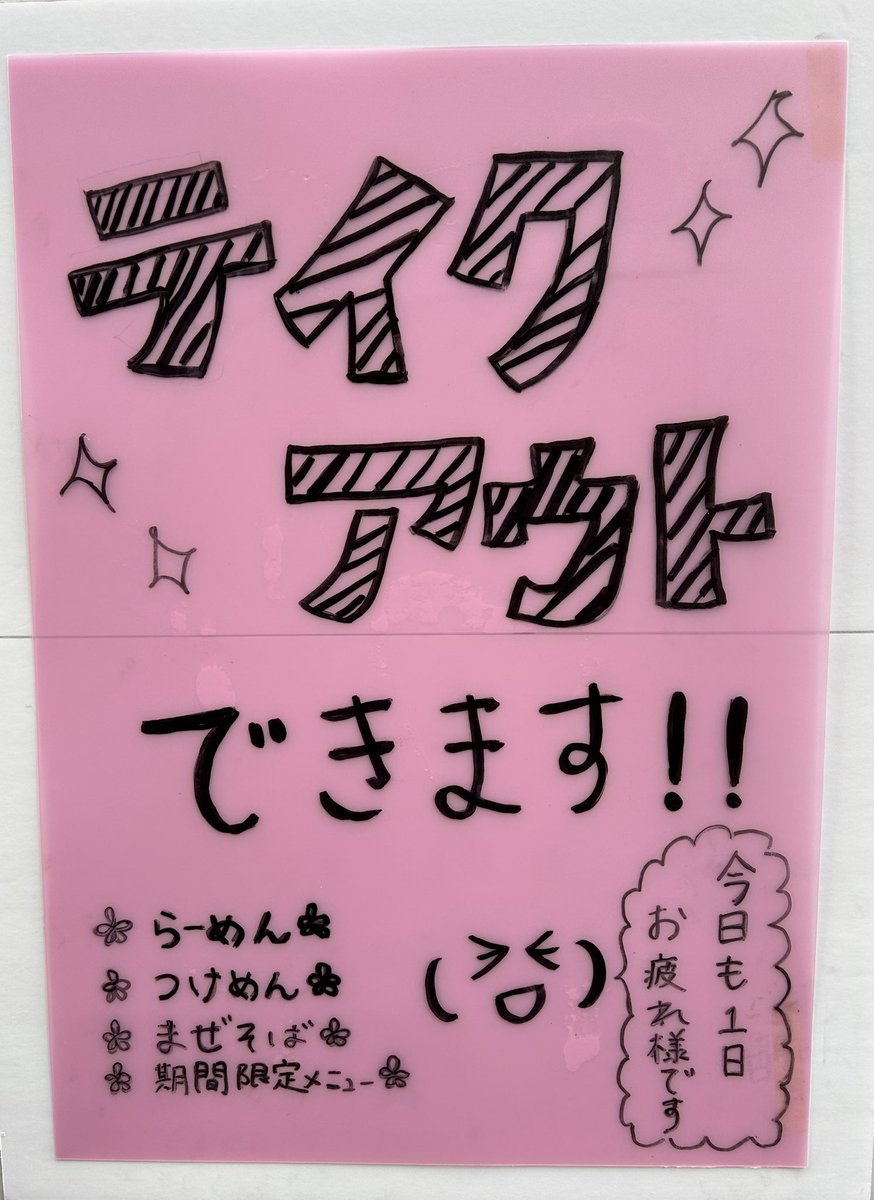 テイク
アウト
できます!!
らーめん
つけめん
まぜそば
期間限定メニュー
今日も1日
お疲れ様です